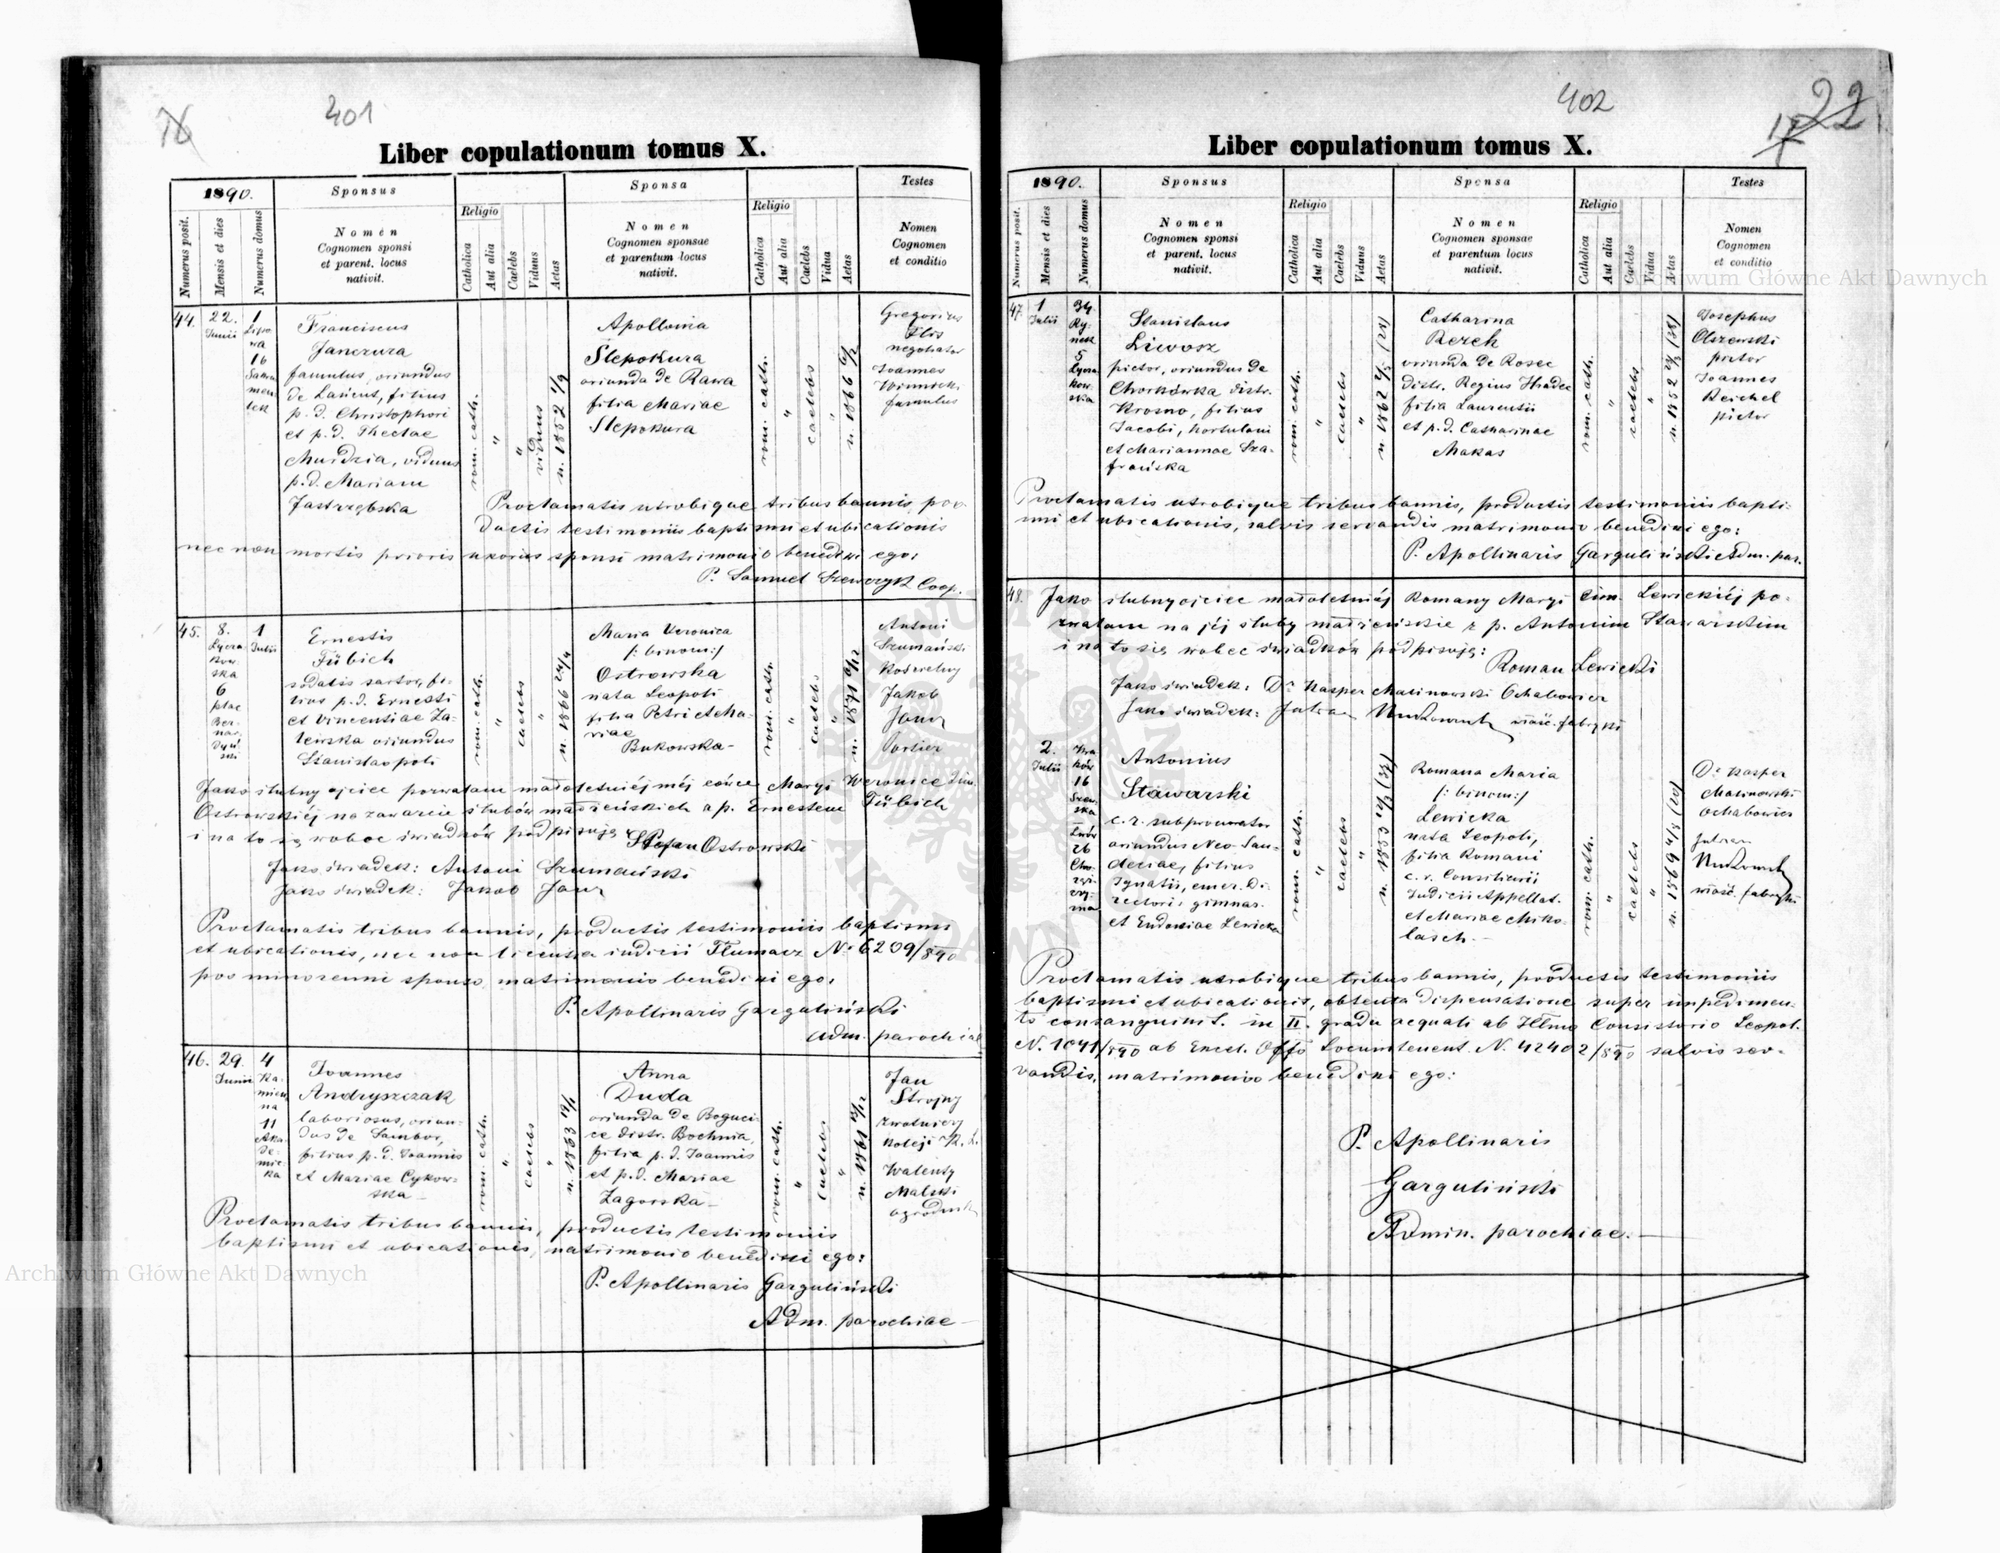 76
401
Liber copulationum tomus X.
1890.
Sponsus
Sponsa
Testes
Religio
Religio
Numerus posit.
Mensis et dies
Numerus domus
Nomen
Cognomen sponsi
et parent. locus
nativit.
Catholica
Aut alia
Caelebs
Viduus
Aetas
Nomen
Cognomen sponsae
et parentum locus
nativit.
Catholica
Aut alia
Caelebs
Vidua
Aetas
Nomen
Cognomen
et conditio
44.
22.
Junii
1
Lipo
wa
16
Sakra
men
tek
Franciscus
Janczura
famulus, oriundus
de Łańcut, filius
p. d. Christophori
et p. d. Theclae
Murdzia, viduus
p. d. Mariam
Jastrzębska
rom. cath.
"
"
viduus
n. 1852 4/9
Apollonia
Ślepokura
oriunda de Rawa
filia Mariae
Ślepokura
rom. cath.
"
caelebs
"
n. 1866 6/2
Gregorius
Flis
negotiator
Joannes
Winnick.
famulus
Proclamatis utrobique tribus bannis, pro-
ductis testimoniis baptismi et ubicationis
nec non mortis prioris uxoris sponsi matrimonio benedixi ego:
P. Samuel Szewczyk Coop.
45.
8.
Lycza
kow
ska
6
plac
Ber
nar
dyń
ski
1
Julii
Ernestis
Tübich
sodalis sartor, fi-
lius p. d. Ernesti
et Vincentiae Za-
lewska oriundus
Stanislaopoli
rom. cath.
"
caelebs
"
n. 1866 24/4
Maria Veronica
/: binom:/
Ostrowska
nata Leopoli
filia Petri et Ma-
riae
Bukowska-
rom. cath.
"
caelebs
"
n. 1871 6/12
Antoni
Szumański
Jakob
Janz
Portier
Jako ślubny ojciec pozwalam małoletniéj méj córce Maryi Weronice
Ostrowskiéj na zawarcie ślubów małżeńskich z p. Ernestem Tübich
i na to się wobec świadków podpisuję Stefan Ostrowski
Jako świadek: Antoni Szumański
Jako świadek: Jakob Janz
Proclamatis tribus bannis, productis testimoniis baptismi
et ubicationis, nec non licentia iudicii Tłumacz No 6209/890
pro minorenni sponso, matrimonio benedixi ego:
P. Apollinaris Garguliński
Adm. parochiae
46.
29.
Junii
4
Ka-
mien
na
11
Aka-
de-
mic-
ka
Joannes
Andryszczak
laboriosus, oriun-
dus de Sambor,
filius p. d. Joannis
et Mariae Cykow-
ska -
rom. cath.
"
caelebs
"
n. 1863 14/1
Anna
Duda
oriunda de Boguci-
ce distr. Bochnia,
filia p. d. Joannis
et p. d. Mariae
Zagorska -
rom. cath.
"
caelebs
"
Jan
Strojny
zwrotniczy
kolei K. L.
Walenty
Malski
ogrodnik
Proclamatis tribus bannis, productis testimoniis
baptismi et ubicationis, matrimonio benedixi ego:
P. Apollinaris Garguliński
Adm. parochiae -
402
22
17
Liber copulationum tomus X.
1890.
Sponsus
Sponsa
Testes
Religio
Religio
Numerus posit.
Mensis et dies
Numerus domus
Nomen
Cognomen sponsi
et parent. locus
nativit.
Catholica
Aut alia
Caelebs
Viduus
Aetas
Nomen
Cognomen sponsae
et parentum locus
nativit.
Catholica
Aut alia
Caelebs
Vidua
Aetas
Nomen
Cognomen
et conditio
47.
1
Julii
34
Ry-
nek
5
Lycza
kow-
ska
Stanislaus
Liwosz
pictor, oriundus de
Chorkówka distr.
Krosno, filius
Jacobi, hortulani
et Mariannae Sza-
frańska
rom. cath.
"
caelebs
"
n. 1862 2/5 (28)
Catharina
Rezek
oriunda de Rosec
distr. Regius Hradec
filia Laurentii
et p. d. Catharinae
Makas
rom. cath.
"
caelebs
"
Josephus
Olszewski
pictor
Joannes
Reichel
pictor
Proclamatis utrobique tribus bannis, productis testimoniis bapti-
smi et ubicationis, salvis servandis matrimonio benedixi ego:
P. Apollinaris Garguliński Adm. par.
48.
Jako ślubny ojciec małoletniéj Romany Maryi Lewickiéj po-
zwalam na jéj śluby małżeńskie z p. Antonim Stawarskim
i na to się wobec świadków podpisuję:
Roman Lewicki
Jako świadek: Dr Kasper Malinowski Ochabowicz
Jako świadek: właść. fabryki
2.
Julii
Kra
ków
16
Szew-
ska
Lwów
26
Cho-
rąż-
czy-
zna
Antonius
Stawarski
c. r. subprocurator
oriundus Neo-San-
deciae, filius
Ignatii, emer. Di-
rectori gimnas.
et Eudoxiae Lewicka
rom. cath.
"
caelebs
"
Romana Maria
/: binom:/
Lewicka
nata Leopoli,
filia Romani
c. r. Consiliarii
Iudicii Appellat.
et Mariae Miko-
lasch. -
rom. cath.
"
caelebs
"
n. 1869 4/8 (20)
Dr Kasper
Malinowski
Ochabowicz
właść. fabryki
Proclamatis utrobique tribus bannis, productis testimoniis
baptismi et ubicationis, obtenta dispensatione super impedimen-
to consanguinit. in II. gradu aequali ab Illmo Consistorio Leopol.
N. 1041/890 ab Excel. Offo Locumtenent. N. 42402/890 salvis ser-
vandis, matrimonio benedixi ego:
P. Apollinaris
Garguliński
Admin. parochiae. -
Archiwum Główne Akt Dawnych
Archiwum Główne Akt Dawnych
ARCHIWUM GŁÓWNE AKT DAWNYCH